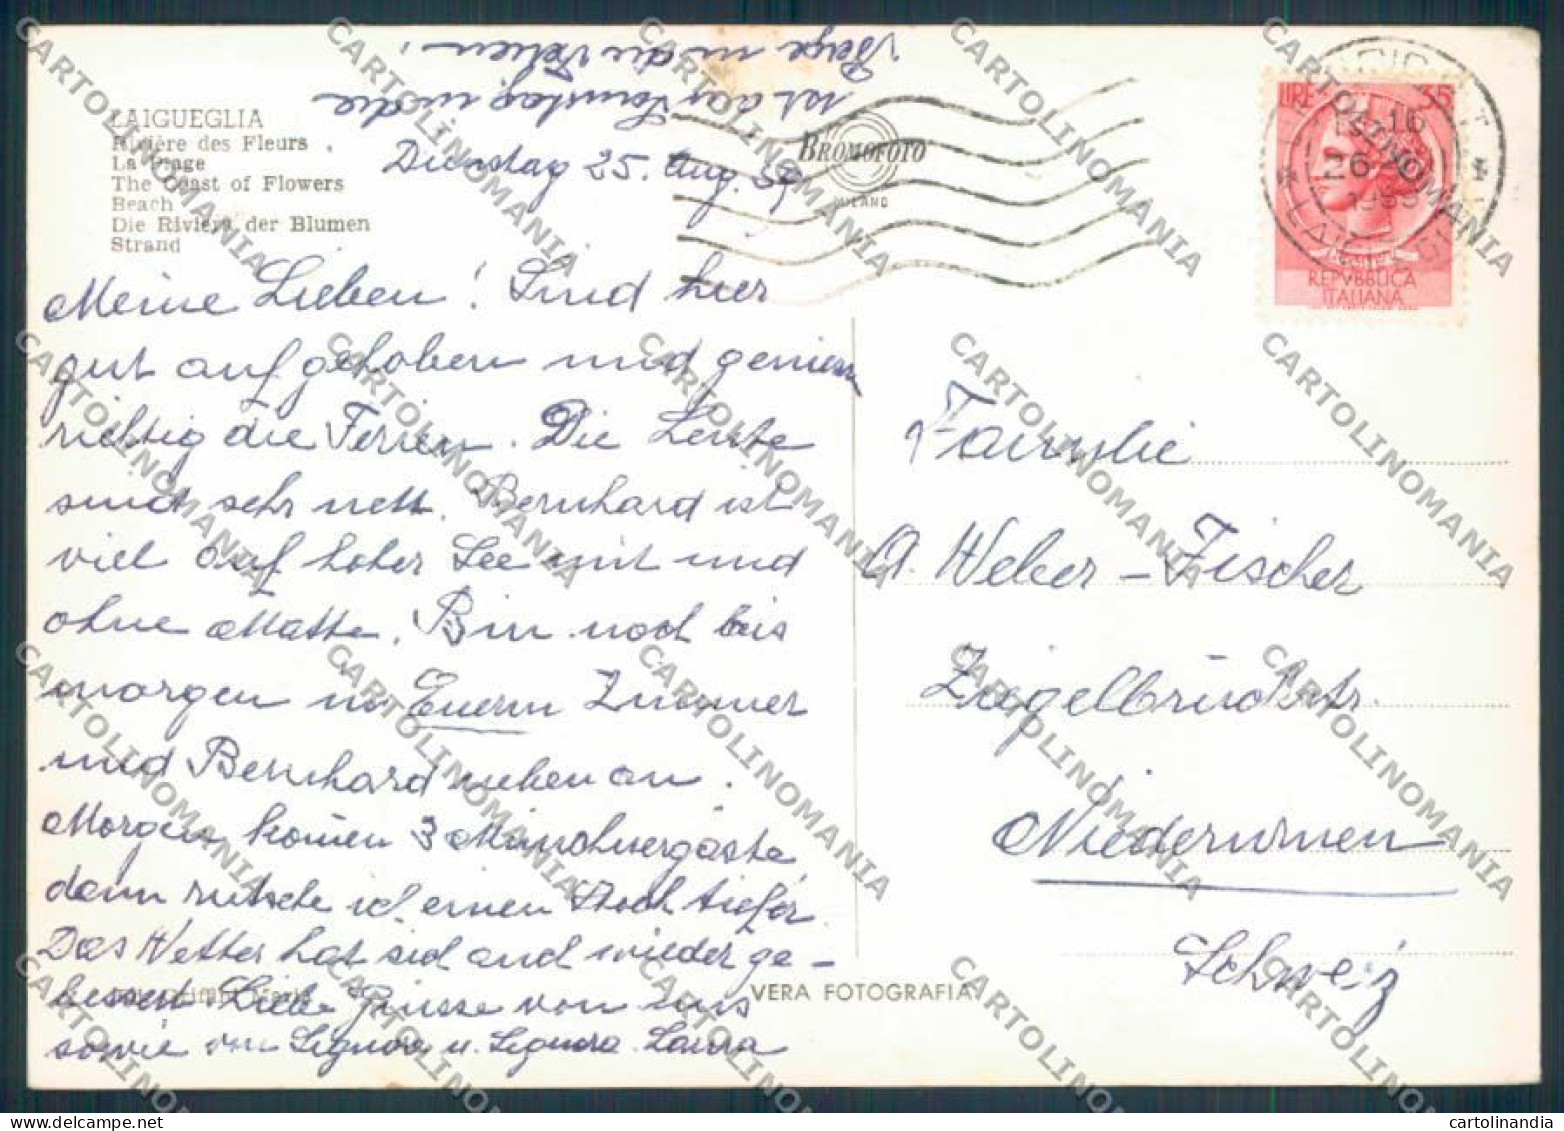 LAIGUEGLIA
Rivière des Fleurs
La Plage
The Coast of Flowers
Beach
Die Riviera der Blumen
Strand
Dienstag 25. Aug. 59
BROMOFOTO
MILANO
LIRE 35
REPVBBLICA
ITALIANA
Meine Lieben! Sind hier
gut aufgehoben und geniessen
richtig die Ferien. Die Leute
sind sehr nett. Bernhard ist
viel auf hoher See mit und
ohne Matte. Bin noch bis
morgen in Euerm Zimmer
und Bernhard neben an.
Morgen komen 3 Münchnergäste
dann rutsche ich einen Stock tiefer.
Das Wetter hat sich auch wieder ge-
bessert. Liebe Grüsse von uns
sowie von Signor u. Signora Laura
ist am Samstag in die
Berge in die Ferien.
Familie
A. Weber-Fischer
Ziegelbrückstr.
Niederurnen
Schweiz
VERA FOTOGRAFIA
CARTOLINOMANIA
cartolinandia